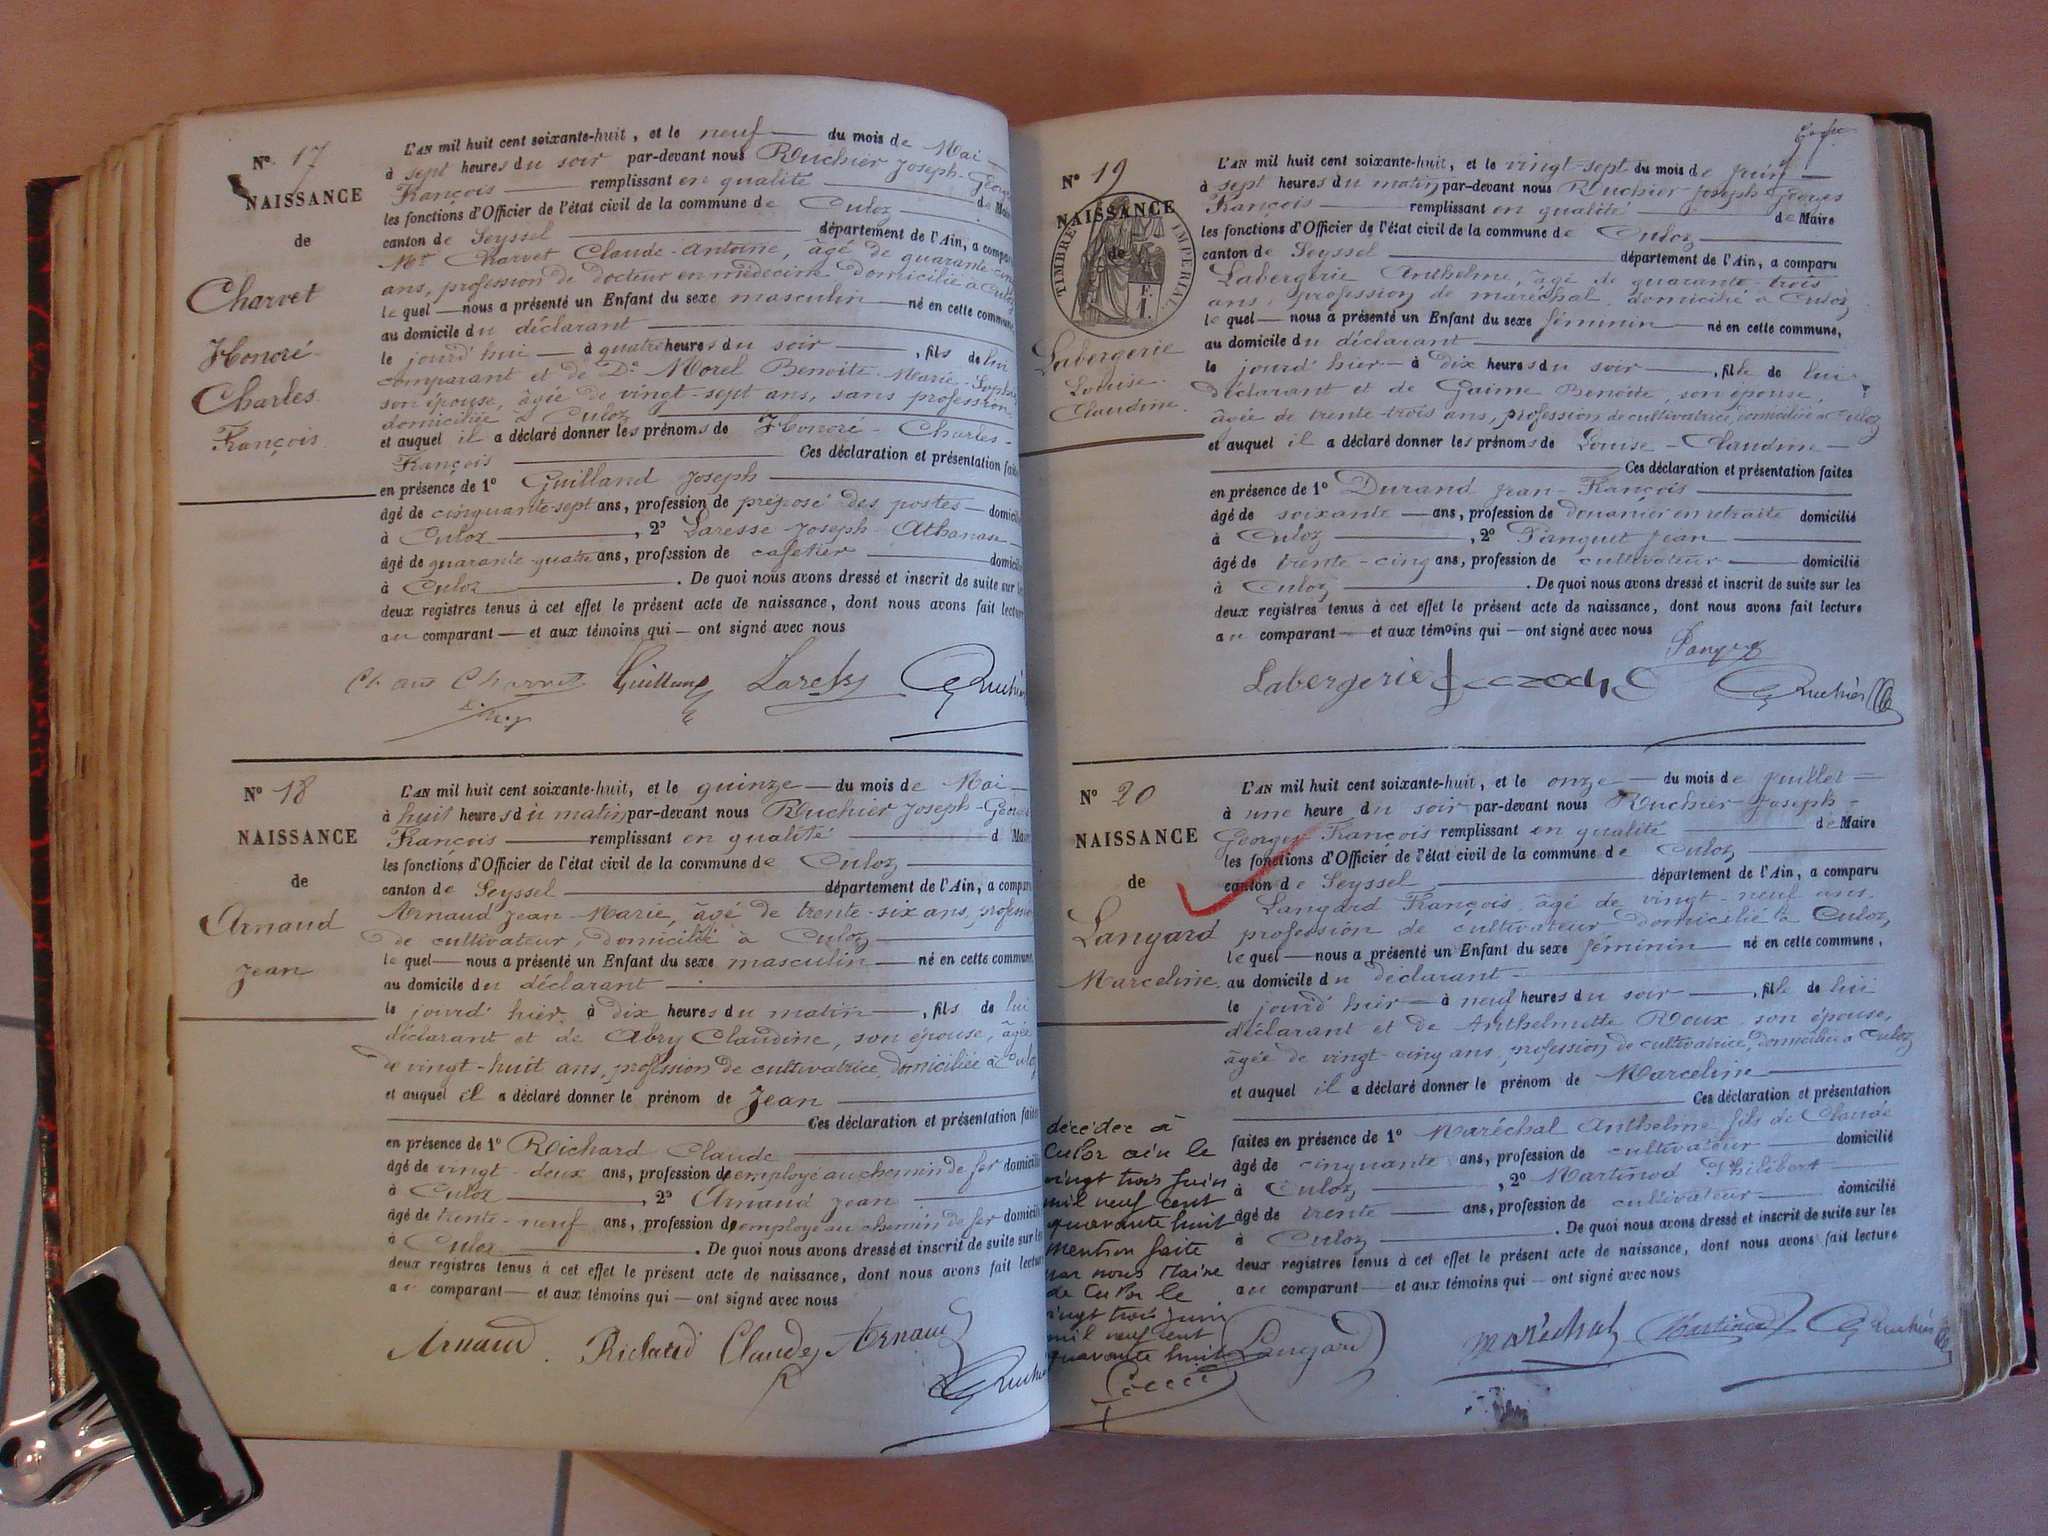 N° 17
NAISSANCE
de
Charvet
Honoré
Charles
François
L'AN mil huit cent soixante-huit, et le neuf du mois de Mai
à sept heures du soir par-devant nous Ruchier Joseph-Georges
François remplissant en qualité de Maire
les fonctions d'Officier de l'état civil de la commune de Culoz
canton de Seyssel département de l'Ain, a comparu
Mr Charvet Claude-Antoine, âgé de quarante-cinq
ans, profession de docteur en médecine domicilié à Culoz
le quel nous a présenté un Enfant du sexe masculin né en cette commune
au domicile du déclarant
le jourd'hui à quatre heures du soir, fils de lui
comparant et de De Morel Benoite-Marie-Sophie
son épouse, âgée de vingt-sept ans, sans profession
domiciliée à Culoz
et auquel il a déclaré donner les prénoms de Honoré-Charles-
François Ces déclaration et présentation faites
en présence de 1° Guilland Joseph
âgé de cinquante-sept ans, profession de préposé des postes domicilié
à Culoz, 2° Laresse Joseph-Athanase
âgé de quarante-quatre ans, profession de cafetier domicilié
à Culoz. De quoi nous avons dressé et inscrit de suite sur les
deux registres tenus à cet effet le présent acte de naissance, dont nous avons fait lecture
au comparant et aux témoins qui ont signé avec nous
Charvet Guilland Ruchier
N° 18
NAISSANCE
de
Arnaud
Jean
L'AN mil huit cent soixante-huit, et le quinze du mois de Mai
à huit heures du matin par-devant nous Ruchier Joseph-Georges
François remplissant en qualité d Maire
les fonctions d'Officier de l'état civil de la commune de Culoz
canton de Seyssel département de l'Ain, a comparu
Arnaud Jean-Marie, âgé de trente-six ans, profession
de cultivateur, domicilié à Culoz
le quel nous a présenté un Enfant du sexe masculin né en cette commune
au domicile du déclarant
le jourd'hier, à dix heures du matin, fils de lui
déclarant et de Abry Claudine, son épouse, âgée
de vingt-huit ans, profession de cultivatrice, domiciliée à Culoz
et auquel il a déclaré donner le prénom de Jean
Ces déclaration et présentation faites
en présence de 1° Richard Claude
âgé de vingt-deux ans, profession d'employé au chemin de fer domicilié
à Culoz, 2° Arnaud Jean
âgé de trente-neuf ans, profession d'employé au chemin de fer domicilié
à Culoz. De quoi nous avons dressé et inscrit de suite sur les
deux registres tenus à cet effet le présent acte de naissance, dont nous avons fait lecture
au comparant et aux témoins qui ont signé avec nous
Arnaud Richard Claude Arnaud
Ruchier
N° 19
NAISSANCE
de
TIMBRE IMPÉRIAL
Labergerie
Louise
Claudine
L'AN mil huit cent soixante-huit, et le vingt-sept du mois de juin
à sept heures du matin par-devant nous Ruchier Joseph Georges
François remplissant en qualité de Maire
les fonctions d'Officier de l'état civil de la commune de Culoz
canton de Seyssel département de l'Ain, a comparu
Labergerie Anthelme, âgé de quarante-trois
ans, profession de maréchal, domicilié à Culoz
le quel nous a présenté un Enfant du sexe féminin né en cette commune,
au domicile du déclarant
le jourd'hier à dix heures du soir, fille de lui
déclarant et de Gaime Benoite, son épouse,
âgée de trente-trois ans, profession de cultivatrice, domiciliée à Culoz
et auquel il a déclaré donner les prénoms de Louise-Claudine
Ces déclaration et présentation faites
en présence de 1° Durand Jean-François
âgé de soixante ans, profession de douanier en retraite domicilié
à Culoz, 2° Panguet Jean
âgé de trente-cinq ans, profession de cultivateur domicilié
à Culoz. De quoi nous avons dressé et inscrit de suite sur les
deux registres tenus à cet effet le présent acte de naissance, dont nous avons fait lecture
au comparant et aux témoins qui ont signé avec nous
Labergerie Ruchier
N° 20
NAISSANCE
de
Langard
Marceline
L'AN mil huit cent soixante-huit, et le onze du mois de juillet
à une heure du soir par-devant nous Ruchier Joseph-
Georges François remplissant en qualité de Maire
les fonctions d'Officier de l'état civil de la commune de Culoz
canton de Seyssel département de l'Ain, a comparu
Langard François, âgé de vingt-neuf ans,
profession de cultivateur domicilié à Culoz
le quel nous a présenté un Enfant du sexe féminin né en cette commune,
au domicile du déclarant
le jourd'hier à neuf heures du soir, fille de lui
déclarant et de Anthelmette Roux son épouse,
âgée de vingt-cinq ans, profession de cultivatrice, domiciliée à Culoz
et auquel il a déclaré donner le prénom de Marceline
Ces déclaration et présentation
faites en présence de 1° Maréchal Anthelme fils de Claude
âgé de cinquante ans, profession de cultivateur domicilié
à Culoz, 2° Martinod Philibert
âgé de trente ans, profession de cultivateur domicilié
à Culoz. De quoi nous avons dressé et inscrit de suite sur les
deux registres tenus à cet effet le présent acte de naissance, dont nous avons fait lecture
au comparant et aux témoins qui ont signé avec nous
décédée à
Culoz ain le
vingt trois juin
mil neuf cent
quarante huit
mention faite
par nous Maire
de Culoz le
vingt trois juin
mil neuf cent
quarante huit
Langard Maréchal Martinod Ruchier